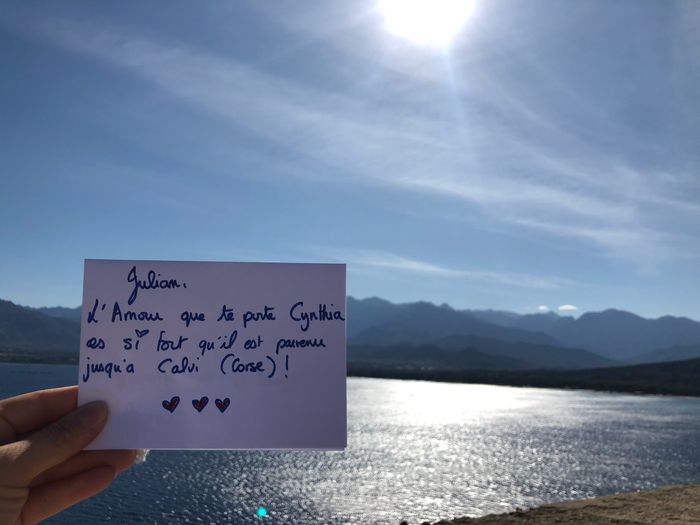 Julian,
L'Amour que te porte Cynthia
es si fort qu'il est parvenu
jusqu'a Calvi (Corse) !